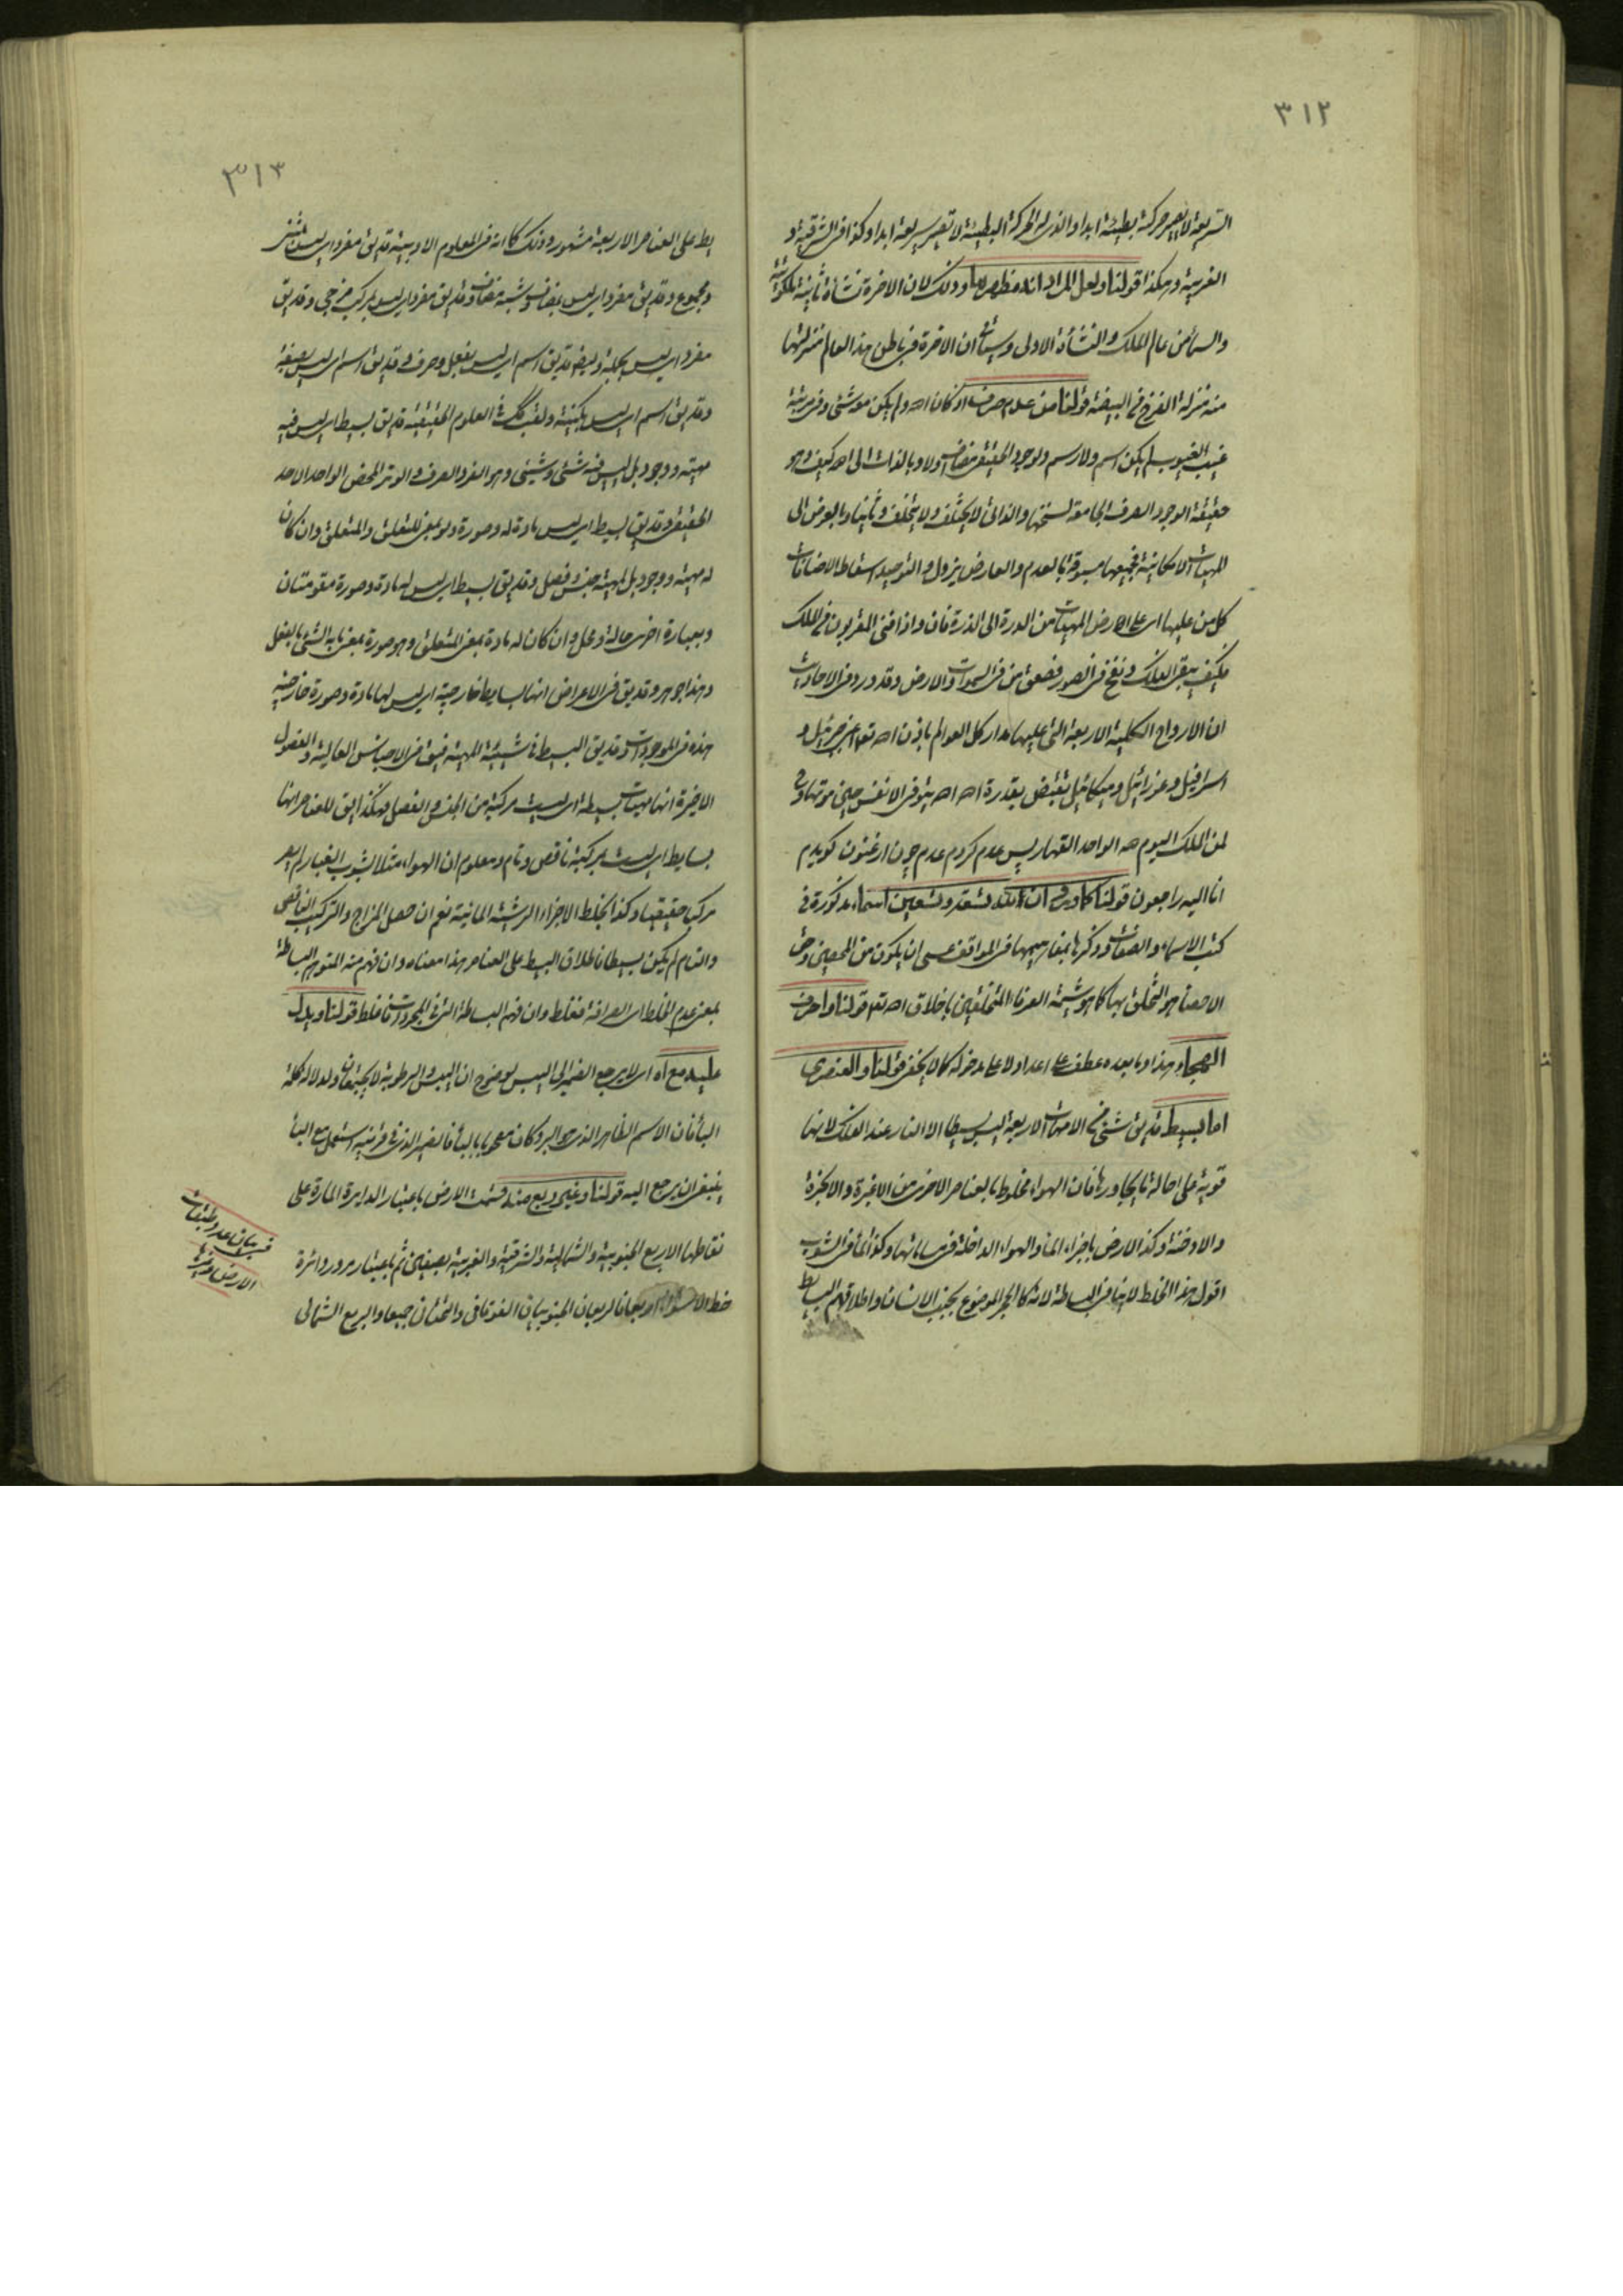 ٣١٢
السريعة لا يصير حركة بطيئة ابدا والذى له الحركة البطيئة لا تصير سريعة ابدا وكذا فى الشرقية و
الغربية وهكذا قولنا ولعل المراد انه مظهرها وذلك لان الاخرة نشأة ثانية ملكوتية
والسماء من عالم الملك والنشأة الاولى وسيأتى ان الاخرة فى باطن هذا العالم منزلتها
منه منزلة الفرخ فى البيضة قولنا من عدم صرف اذ كان الله ولم يكن معه شئ وفى مرتبة
غيب الغيوب لم يكن اسم ولا رسم والوجود الحقيقى مضاف اولا وبالذات الى الله كيف وهو
حقيقة الوجود الصرف الجامعة لسنخها والذاتى لا يختلف ولا يتخلف وثانيا وبالعرض الى
المهيات الامكانية فجميعها مسبوقة بالعدم والعارض يزول والتوحيد اسقاط الاضافات
كل من عليها اى على ارض المهيات من الدرة الى الذرة فان واذا فنى المقربون فى الملك
فكيف يبقى الفلك ونفخ فى الصور فصعق من فى السموات والارض وقد ورد فى الاحاديث
ان الارواح الكلية الاربعة التى عليها مدار كل العوالم باذن الله تعالى اعنى جبرئيل و
اسرافيل وعزرائيل وميكائيل تقبض بقدرة الله الله يتوفى الانفس حين موتها و
لمن الملك اليوم لله الواحد القهار پس عدم گردم عدم چون ارغنون گويدم
انا اليه راجعون قولنا كما ورد ان لله تسعة وتسعين اسماء مذكورة فى
كتب الاسماء والصفات وذكرها بمفاهيمها فى المواقف عسى ان يكون من المحصين وحق
الاحصاء هو التخلق بها كما هو شيمة العرفاء المتخلقين باخلاق الله تعالى قولنا واحرف
الهجاء هذا وما بعده عطف على اعداد لا على مدخوله كما لا يخفى قولنا والعنصرى
اما بسيط قد يق شئ من الامهات الاربعة ليس بسيطا الا النار عند الفلك لانها
قوية على احالة ما يجاورها فان الهواء مخلوط بالعناصر الاخرى من الاغبرة والابخرة
والادخنة وكذا الارض باجزاء الماء والهواء الداخلة فى مساماتها وكذا الماء فى الشوب
اقول هذا الخلط لا ينافى البساطة لانه كالحجر الموضوع بجنب الانسان واطلاقهم البسا
٣١٣
يط على العناصر الاربعة مشهور وذلك كما انه فى العلوم الادبية قد يق مفرد اى ليس بمثنى
ومجموع وقد يق مفرد اى ليس بمضاف وشبه مضاف وقد يق مفرد اى ليس بمركب مزجى وقد يق
مفرد اى ليس بجملة وايضا قد يق اسم اى ليس بفعل وحرف وقد يق اسم اى ليس بصفة
وقد يق اسم اى ليس بكنية ولقب كك فى العلوم الحقيقية قد يق بسيط اى ليس فيه
مهية ووجود بل ليس فيه شئ وشئ وهو الفرد الصرف والوتر المحض الواحد الاحد
الحقيقى وقد يق بسيط اى ليس مادة له وصورة ولو بمعنى المتعلق والمتعلق وان كان
له مهية ووجود بل لمهية جنس وفصل وقد يق بسيط اى ليس له مادة وصورة مقومتان
وبعبارة اخرى حالة ومحل وان كان له مادة بمعنى المتعلق وهو صورة بمعنى ما به الشئ بالفعل
وهذا جوهر وقد يق فى الاعراض انها بسايط خارجية اى ليس لها مادة وصورة خارجية
هذه فى الموجودات وقد يق البسيط فى شيئية المهية فيق فى الاجناس العالية والفصول
الاخيرة انها مهيات بسيطة اى ليست مركبة من الجنس والفصل فهكذا يق للعناصر انها
بسايط اى ليست بمركبة ناقص وتام ومعلوم ان الهواء مثلا بشوب الغبار لم يصر
مركبا حقيقيا وكذا بخلط الاجزاء الرشية المائية نعم ان حصل المزاج والتركيب الناقص
والتام لم يكن بسيطا فاطلاق البسيط على العناصر هذا معناه وان فهم منه المتوهم البساطة
بمعنى عدم الخلط اى الصرافة فغلط وان فهم البساطة التى فى المجردات فاغلط قولنا ويدل
عليه مع اه اى لا يرجع الضمير الى اليبس لوضوح ان اليبس والرطوبة لا يجتمعان ولدلالة كلمة
الباء فان الاسم الظاهر الذى هو البر وكان مصحوبا بالباء فالضمير الذى فى قرينه استعمل مع الباء
ينبغى ان يرجع اليه قولنا وغير ربع منه قسمت الارض باعتبار الدايرة المارة على
نقاطها الاربع الجنوبية والشمالية والشرقية والغربية بصفين ثم باعتبار مرور دائرة
خط الاستواء ارباعا فالربعان الجنوبيان الفوقانى والتحتانى جميعا والربع الشمالى
فى بيان عدد طبقات
الارض وغيرها